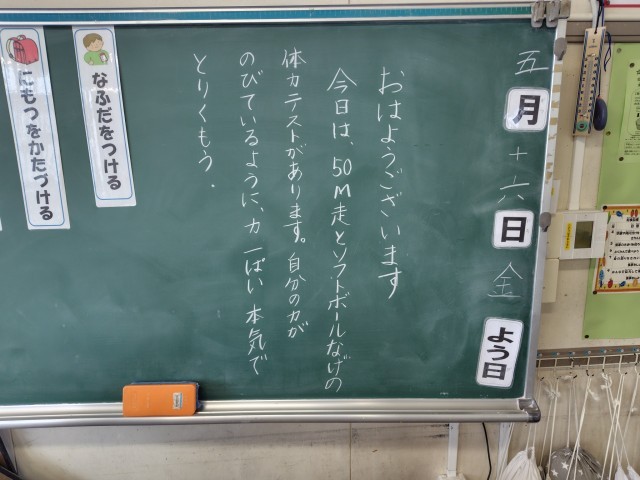 五月十六日金よう日
おはようございます
今日は、50M走とソフトボールなげの
体力テストがあります。自分の力が
のびているように、力一ぱい本気で
とりくもう.
なふだをつける
にもつをかたづける